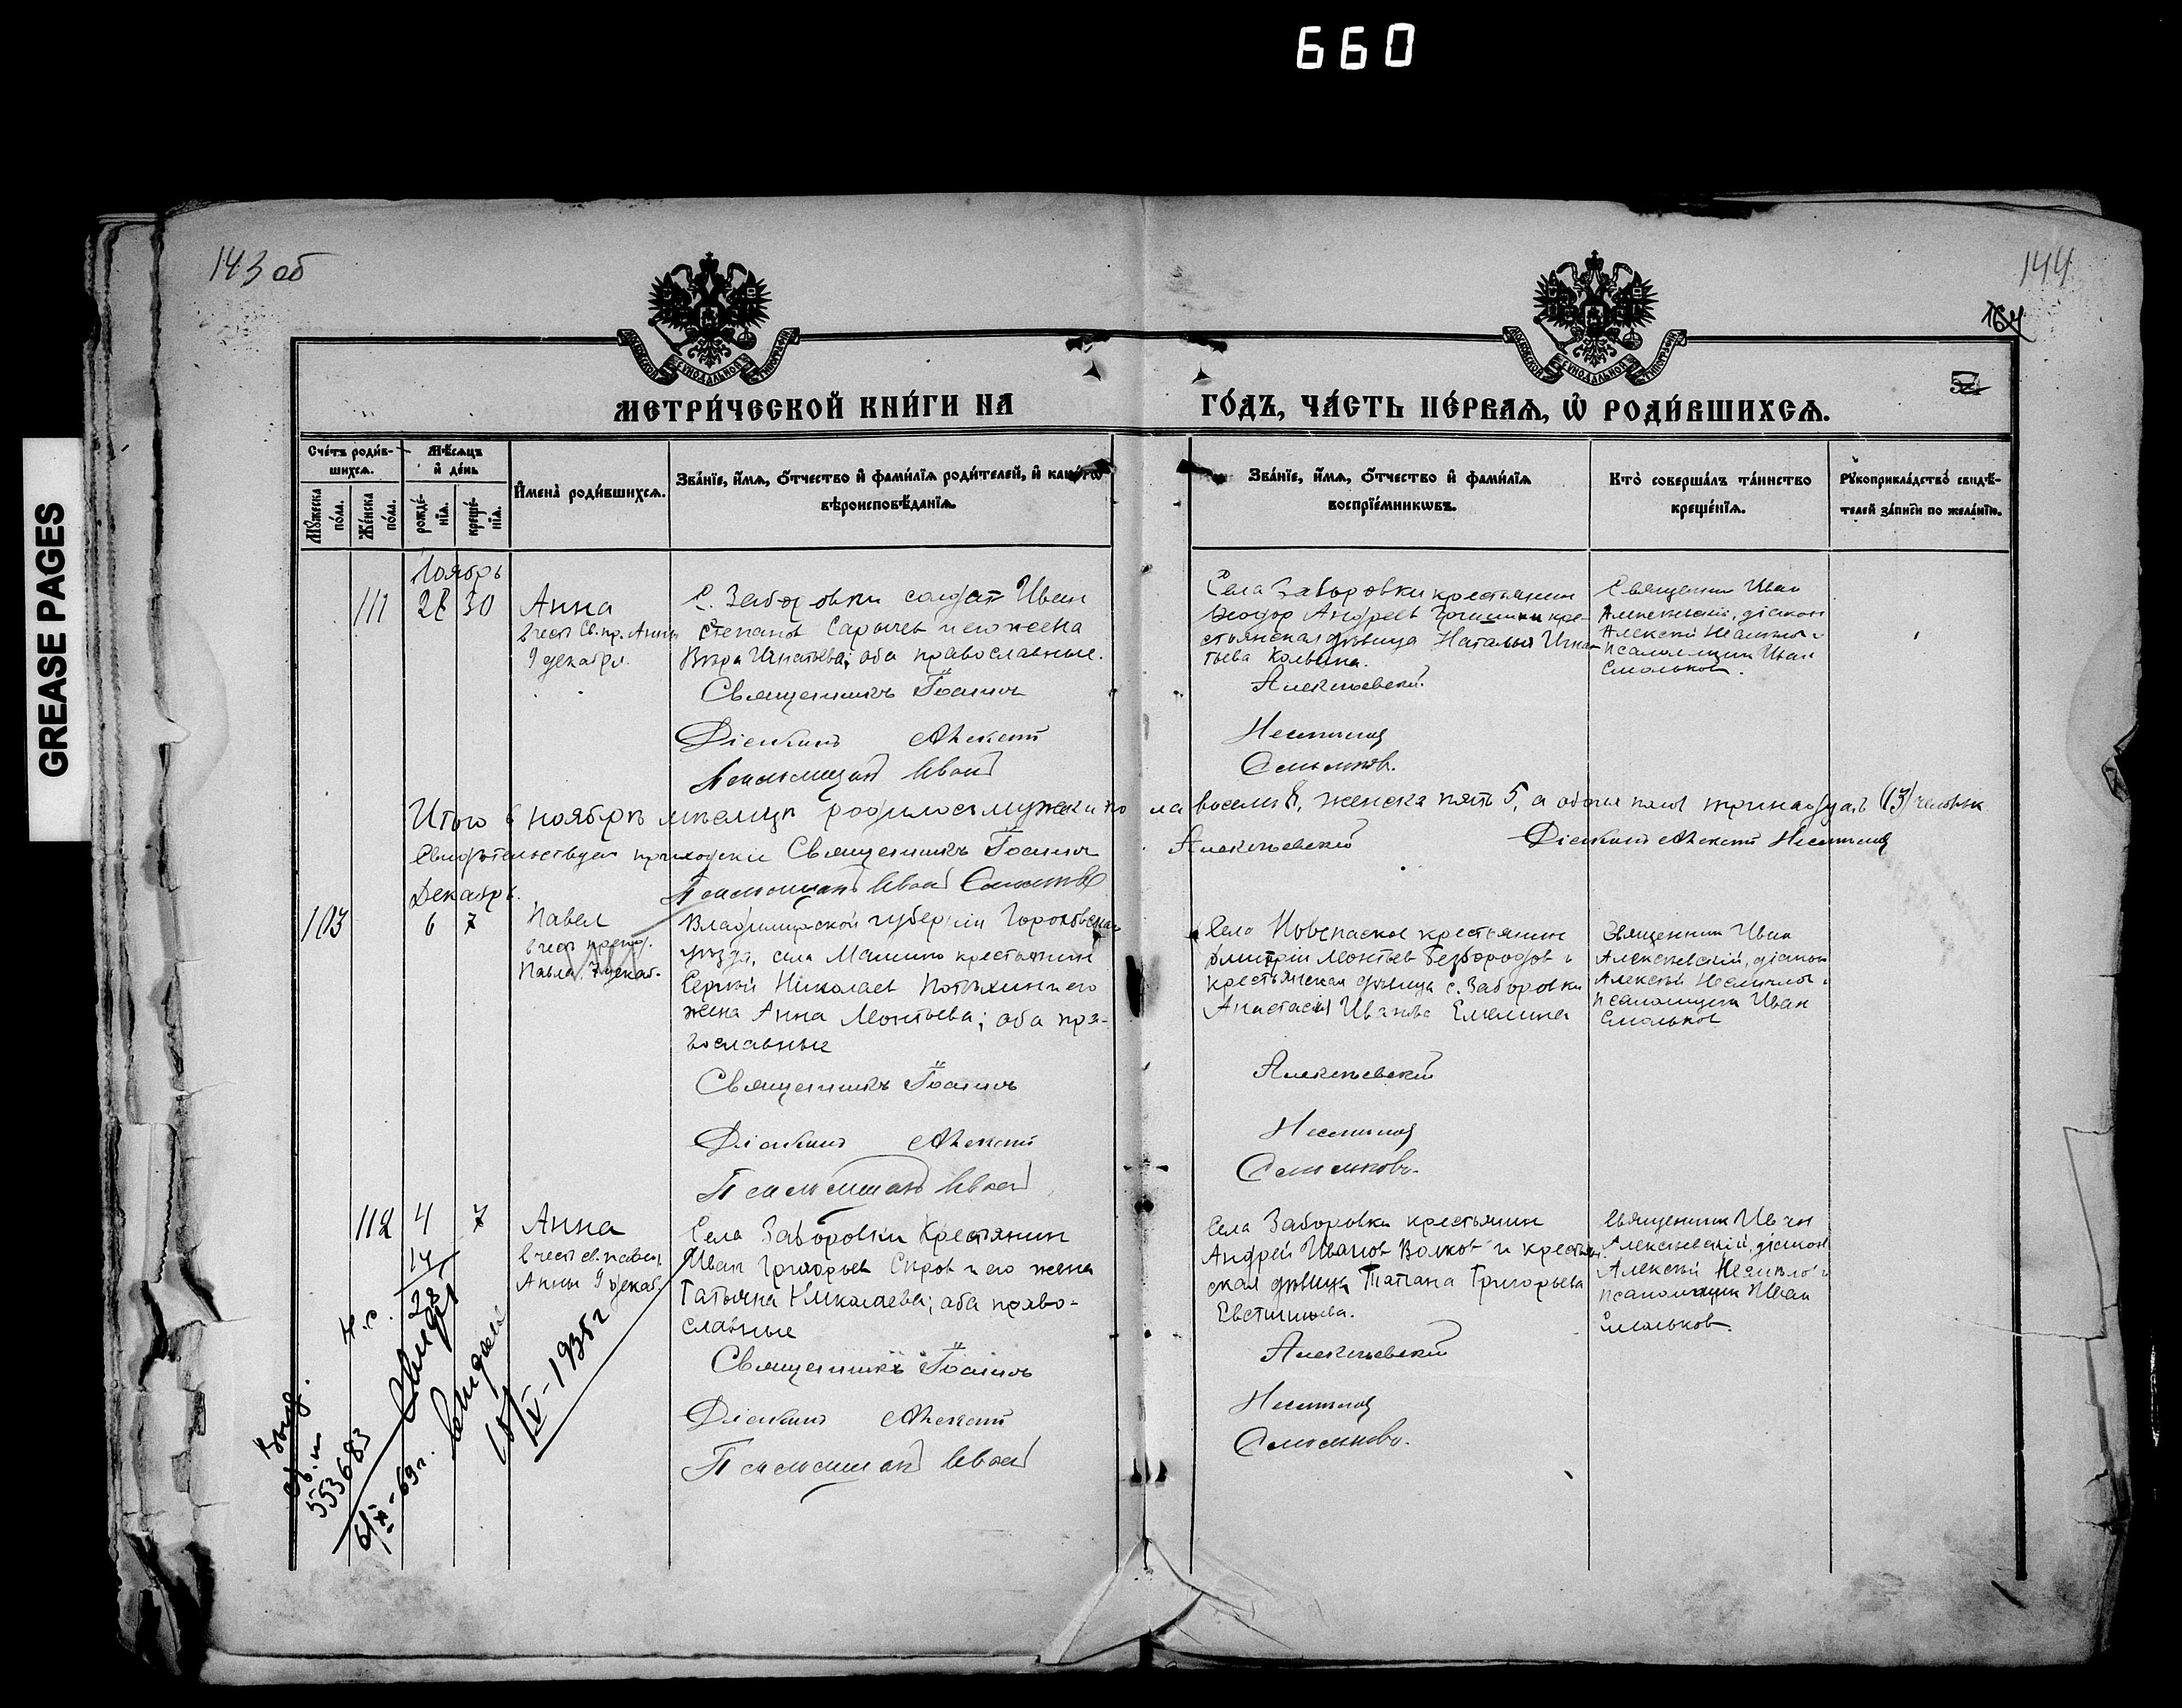 660
GREASE PAGES
143 об
144
164
МЕТРИ́ЧЕСКОЙ КНИ́ГИ НА
ГО́ДЪ, ЧА́СТЬ ПЕ́РВАѦ, Ѡ РОДИ́ВШИХСѦ.
Сче́тъ роди́в-
шихсѧ.
Мѣ́сѧцъ
и де́нь
Мꙋ́жеска
по́ла.
Же́нска
по́ла.
рожде́-
нїѧ.
креще́-
нїѧ.
Имена̀ роди́вшихсѧ.
Зва́нїе, и́мѧ, ѻ́тчество и фами́лїѧ роди́телей, и како́гѡ
вѣроисповѣ́данїѧ.
Зва́нїе, и́мѧ, ѻ́тчество и фами́лїѧ
воспрїе́мникѡвъ.
Кто̀ соверша́лъ та́инство
креще́нїѧ.
Рꙋкоприкла́дство свидѣ́-
телей за́писи по жела́нїю.
Ноябрь
111
28 30
Анна
в честь Св. пр. Анны
9 декабря.
С. Заборовки солдат Иван
Степанов Сарычев и его жена
Вѣра Игнатьева; оба православные.
Священникъ Іоаннъ
Діаконъ Алексей
Псаломщик Иван
Села Заборовки крестьянин
Феодор Андреев Гришин и кре-
стьянская дѣвица Наталья Игна-
тьева
Алексѣевский
Смольков.
Священник Иван
Алексѣевский, діакон
Алексѣй
псаломщик Иван
Смольков.
Итого в ноябрѣ мѣсяцѣ родилось мужска по
ла восемь 8, женска пять 5, а обоего пола тринадцать (13) человѣк
Свидѣтельствуем приходскій Священникъ Іоаннъ
Алексѣевский
Діаконъ Алексей
Псаломщик Иван Смольков
Декабрь.
103
6 7
Павел
в честь препод.
Павла 7 декаб.
Владимирской губерніи Гороховецкаго
уѣзда, села Мячкино крестьянин
Сергѣй Николаев Потѣхин и его
жена Анна Леонтьева; оба пра-
вославные
Священникъ Іоаннъ
Діаконъ Алексей
Псаломщик Иван
Села Новспаское крестьянин
Дмитрій Леонтьев Безбородов и
крестьянская дѣвица с. Заборовки
Анастасія Иванова Емелина
Алексѣевский
Смольковъ.
Священник Иван
Алексѣевский, діакон
Алексѣй
псаломщик Иван
Смольков
112
4 7
Анна
в честь св. прав.
Анны 9 декаб.
Села Заборовки Крестьянин
Иван Григорьев Спиров и его жена
Татьяна Николаева; оба право-
славные
Священникъ Іоаннъ
Діаконъ Алексей
Псаломщик Иван
Села Заборовки крестьянин
Андрей Иванов Волков и крестьян-
ская дѣвица Татіана Григорьева
Евстигнеева.
Алексѣевский
Смольковъ.
Священник Иван
Алексѣевский, діакон
Алексѣй
псаломщик Иван
Смольков.
14
28
н.с.
553683
1935 г